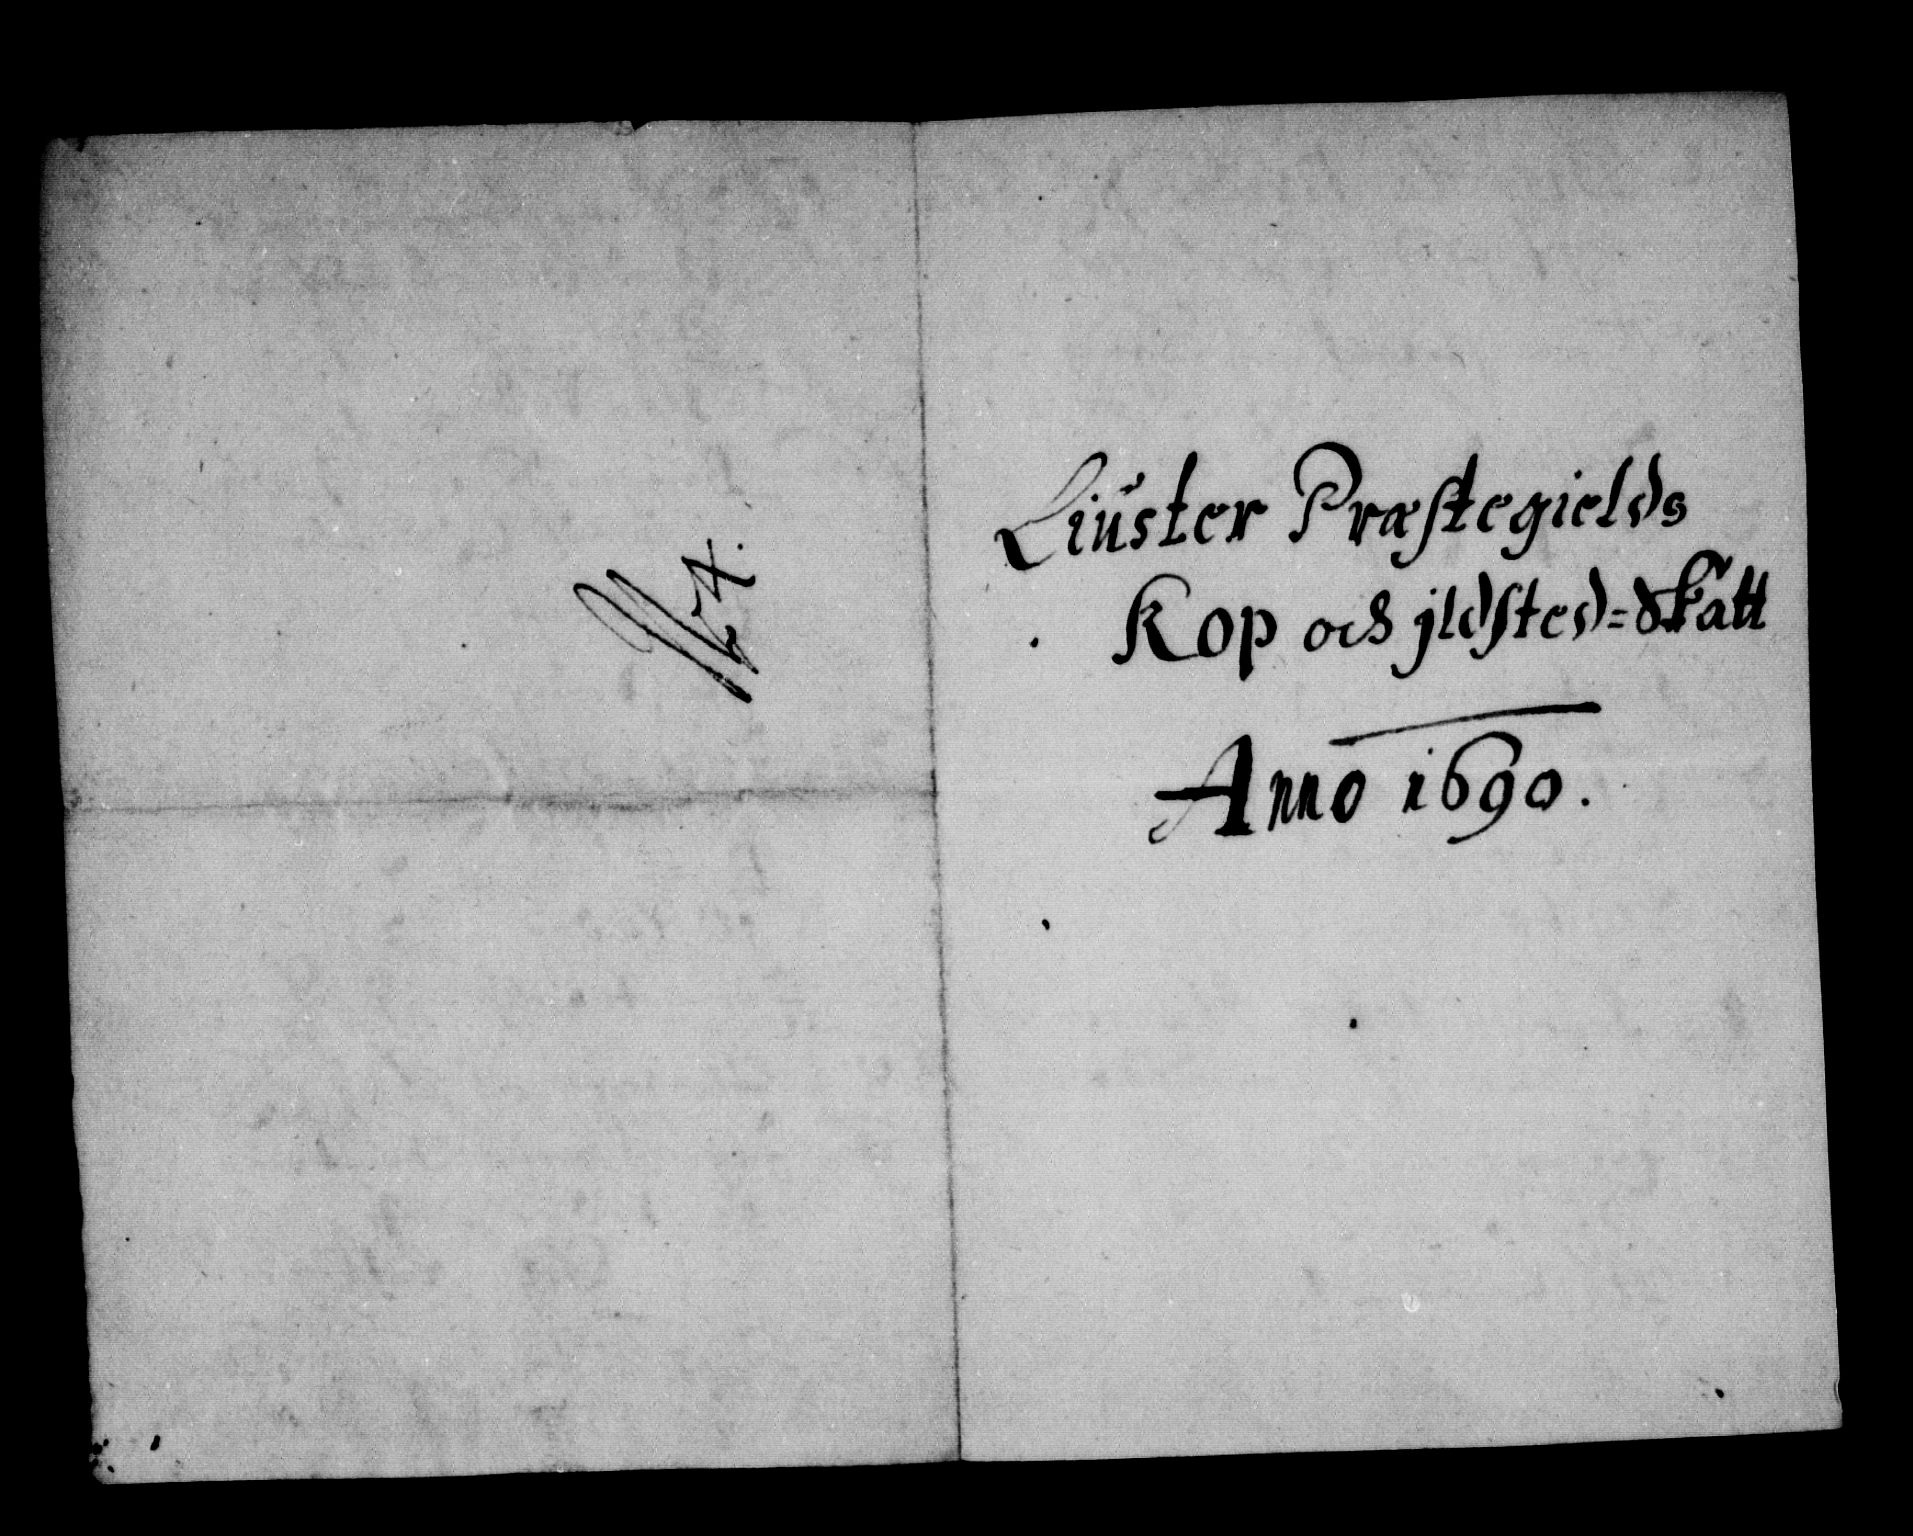 N: 24.
Liuster Præstegields
Kop och jldsted=Skatt
Anno 1690.